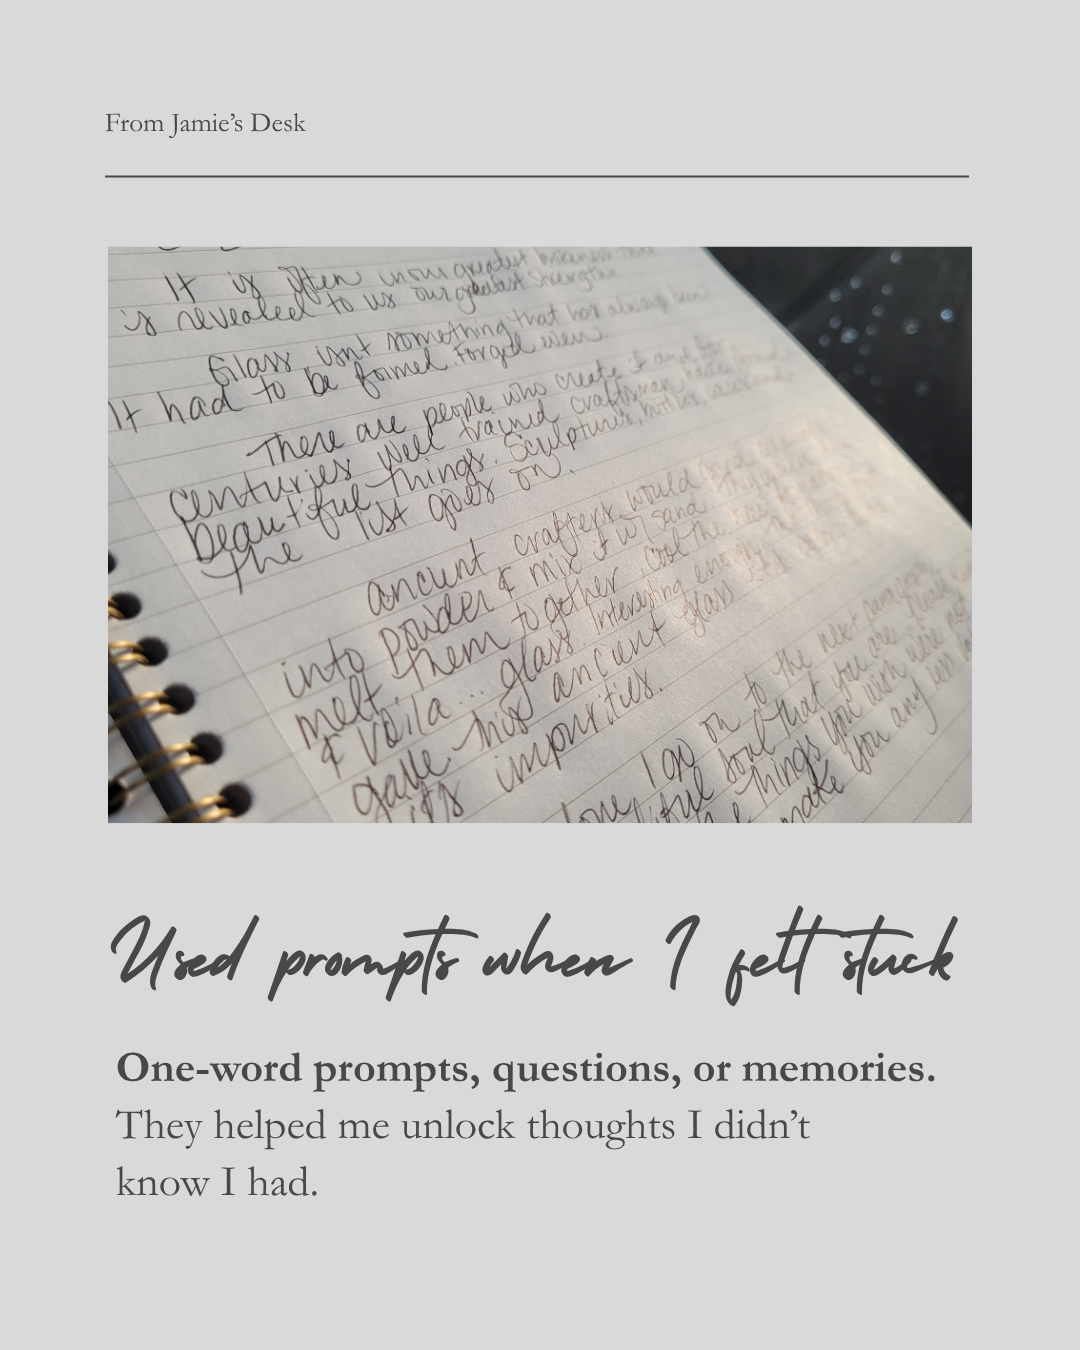 From Jamie’s Desk
It is often in our greatest
is revealed to us our greatest strengths
Glass isnt something that has always been
It had to be formed. Forged even.
There are people who create it and for
centuries well trained craftsman have
beautiful things. Sculptures, bottles,
The list goes on.
ancient crafters would
into powder & mix it w/ sand
melt them together, cool the
& voila... glass. Interesting enough
gave this ancient glass
it's impurities.
I go on to the next paragraph
love soul that you are
things you wish were not
make you any less
Used prompts when I felt stuck
One-word prompts, questions, or memories.
They helped me unlock thoughts I didn’t
know I had.